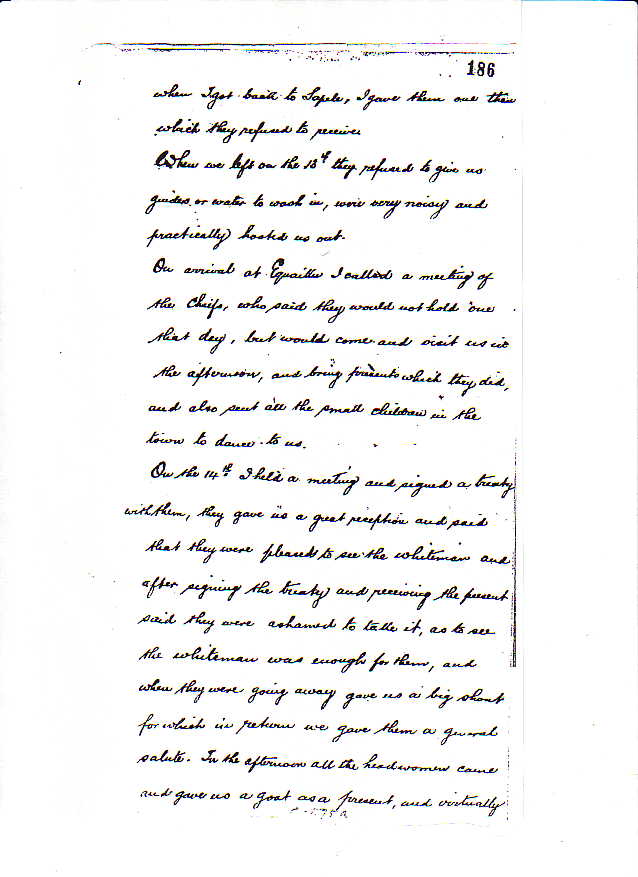 186
when I got back to Sapele, I gave them one then
which they refused to receive
When we left on the 13th they refused to give us
guides or water to wash in, were very noisy and
practically hooted us out.
On arrival at I called a meeting of
the Chiefs, who said they would not hold one
that day, but would come and visit us in
the afternoon, and bring presents which they did,
and also sent all the small children in the
town to dance to us.
On the 14th I held a meeting and signed a treaty
with them, they gave us a great reception and said
that they were pleased to see the whiteman and
after signing the treaty and receiving the present
said they were ashamed to take it, as to see
the whiteman was enough for them, and
when they were going away gave us a big shout
for which in return we gave them a general
salute. In the afternoon all the headwomen came
and gave us a goat as a present, and virtually